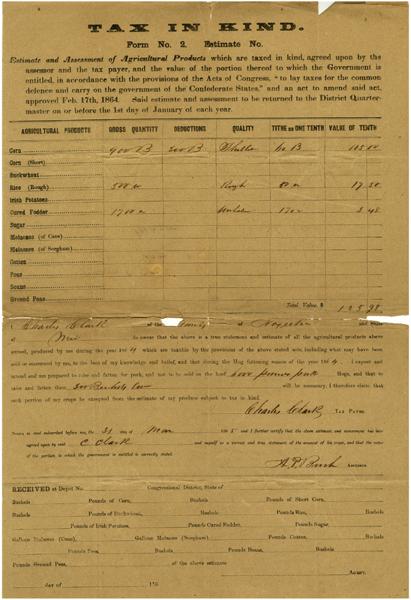 TAX IN KIND.
Form No. 2. Estimate No.
Estimate and Assessment of Agricultural Products which are taxed in kind, agreed upon by the
assessor and the tax payer, and the value of the portion thereof to which the Government is
entitled, in accordance with the provisions of the Acts of Congress, "to lay taxes for the common
defence and carry on the government of the Confederate States," and an act to amend said act,
approved Feb. 17th, 1864. Said estimate and assessment to be returned to the District Quarter-
master on or before the 1st day of January of each year.
AGRICULTURAL PRODUCTS GROSS QUANTITY DEDUCTIONS QUALITY TITHE OR ONE TENTH VALUE OF TENTH
Corn 900 B 300 B 60 B
Corn (Short)
Buckwheat
Rice (Rough) 500 Rough 17.50
Irish Potatoes
Cured Fodder 1700 170
Sugar
Molasses (of Cane)
Molasses (of Sorghum)
Cotton
Peas
Beans
Ground Peas
Total Value $
Charles Clark of the County of and State
of do swear that the above is a true statement and estimate of all the agricultural products above
named, produced by me during the year 1864 which are taxable by the provisions of the above stated acts, including what may have been
sold or consumed by me, to the best of my knowledge and belief, and that during the Hog fattening season of the year 1864 I expect and
intend and am prepared to raise and fatten for pork, and not to be sold on the hoof 6000 pounds pork Hogs, and that to
raise and fatten them 300 Bushels will be necessary. I therefore claim that
such portion of my crops be exempted from the estimate of my produce subject to tax in kind.
Charles Clark Tax Payer.
Sworn to and subscribed before me, the 31 day of Mar 1865 and I further certify that the above estimate and assessment has been
agreed upon by said C. Clark and myself as a correct and true statement of the amount of his crops, and that the value
of the portion to which the government is entitled is correctly stated.
Assessor
RECEIVED at Depot No. Congressional District, State of
Bushels Pounds of Corn, Bushels Pounds of Short Corn,
Bushels Pounds of Buckwheat, Bushels Pounds Rice, Bushels
Pounds of Irish Potatoes, Pounds Cured Fodder, Pounds Sugar,
Gallons Molasses (Cane), Gallons Molasses (Sorghum), Pounds Cotton, Bushels
Pounds Peas, Bushels Pounds Beans, Bushels
Pounds Ground Peas, of the above estimate
Agent.
day of 186